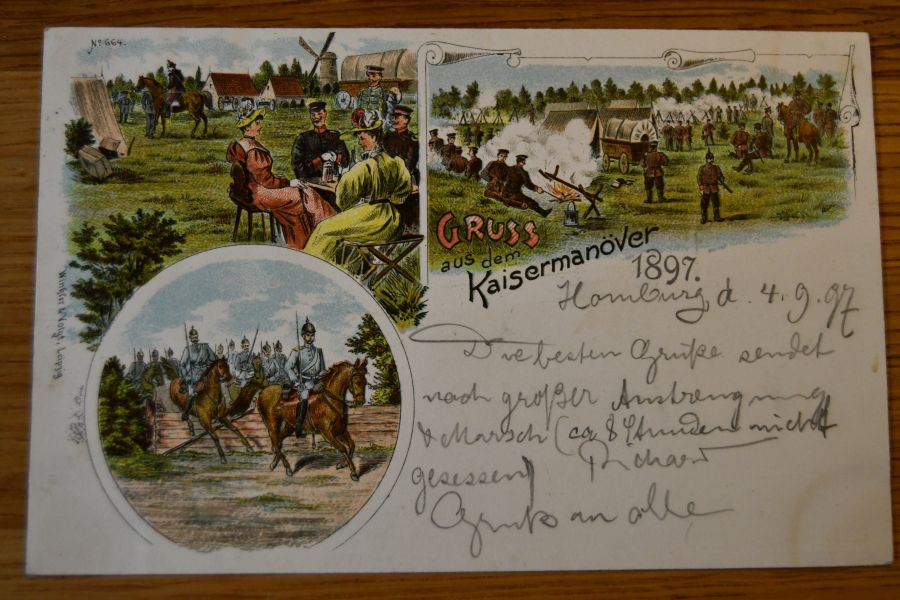 No 664.
GRUSS
aus dem
Kaisermanöver
1897.
Homburg, d. 4. 9. 97
Die besten Grüße sendet
nach großer Anstrengung
& Marsch (ca 8 Stunden nicht
gesessen) Richard
Gruß an alle
Leipzig